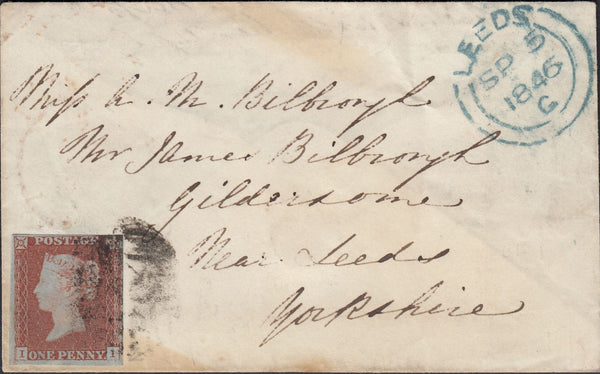 LEEDS
SP 5
1846
G
Miss A. M. Bilbrough
Mr James Bilbrough
Gildersome
Near Leeds
Yorkshire
POSTAGE
I I
ONE PENNY